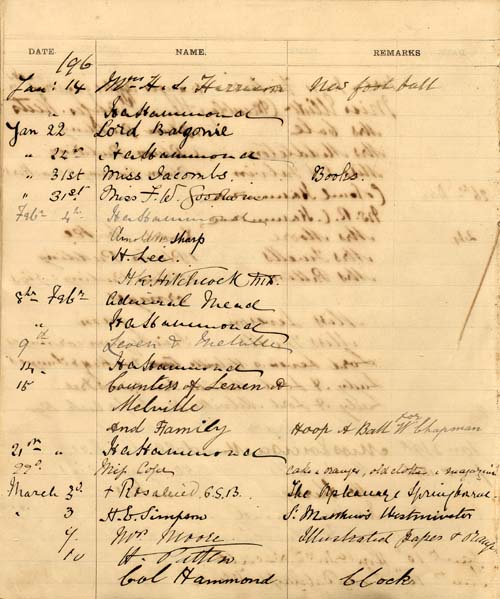 DATE. NAME. REMARKS
196
Jan: 14 Mrs H. S. Harrison New foot ball
" Ha Hammond
Jan 22 Lord Balgonie
" 22nd Ha Hammond
" 31st Miss Jacombs. Books.
" 31st Miss F. W.
Feby 4th Ha Hammond
Arnold W. Sharp
H. Lee.
Hitchcock
8th Feby Admiral Mead
" Ha Hammond
9th Leven & Melville
14 Ha Hammond
15 Countess of Leven &
Melville
and Family Hoop & Ball for W Chapman
21st " Ha Hammond
22d. Miss Cope cake & oranges, old clothes & magazines
March 3d. + Rosalind. G.S.B. The
" 3 H. E. Simpson S. Matthew's Westminster
4 Mrs Moore Illustrated Papers &
10 H.
Col Hammond Clock